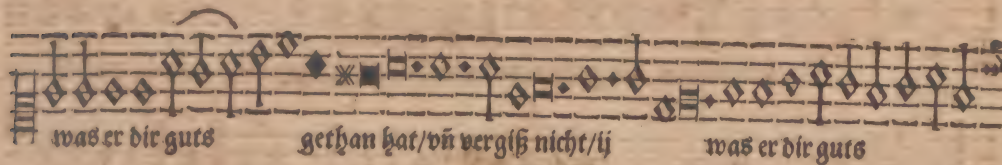 was er dir guts gethan hat/vñ vergiß nicht/ij was er dir guts